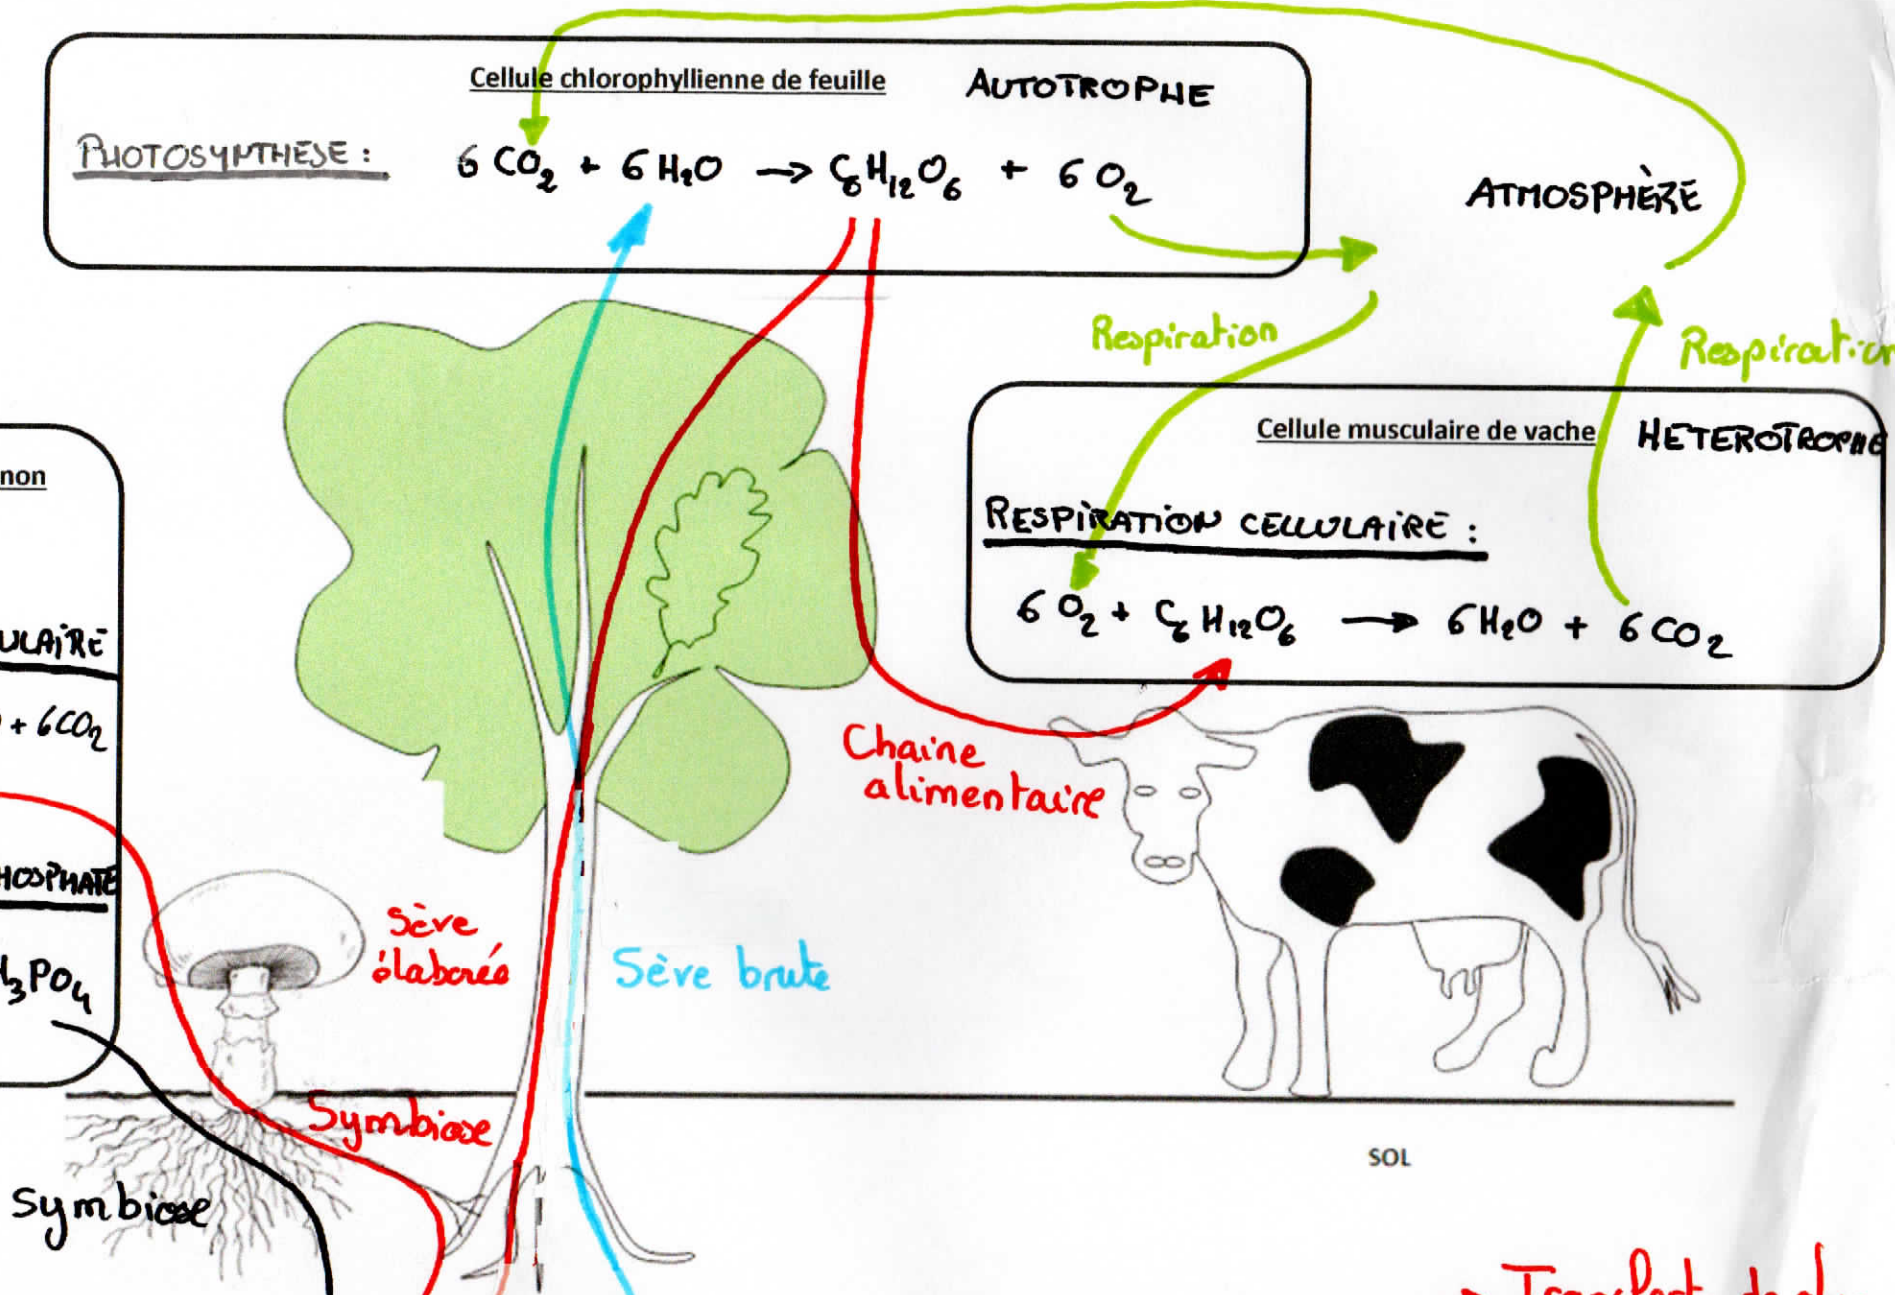 Cellule chlorophyllienne de feuille AUTOTROPHE
PHOTOSYNTHESE : 6 CO₂ + 6 H₂O → C₆H₁₂O₆ + 6 O₂
ATMOSPHÈRE
Respiration
Respiration
Cellule musculaire de vache HETEROTROPHE
RESPIRATION CELLULAIRE :
6 O₂ + C₆H₁₂O₆ → 6 H₂O + 6 CO₂
non
ULAIRE
+ 6CO₂
HOSPHATE
H₃PO₄
Chaine
alimentaire
Sève
élaborée
Sève brute
Symbiose
Symbiose
SOL